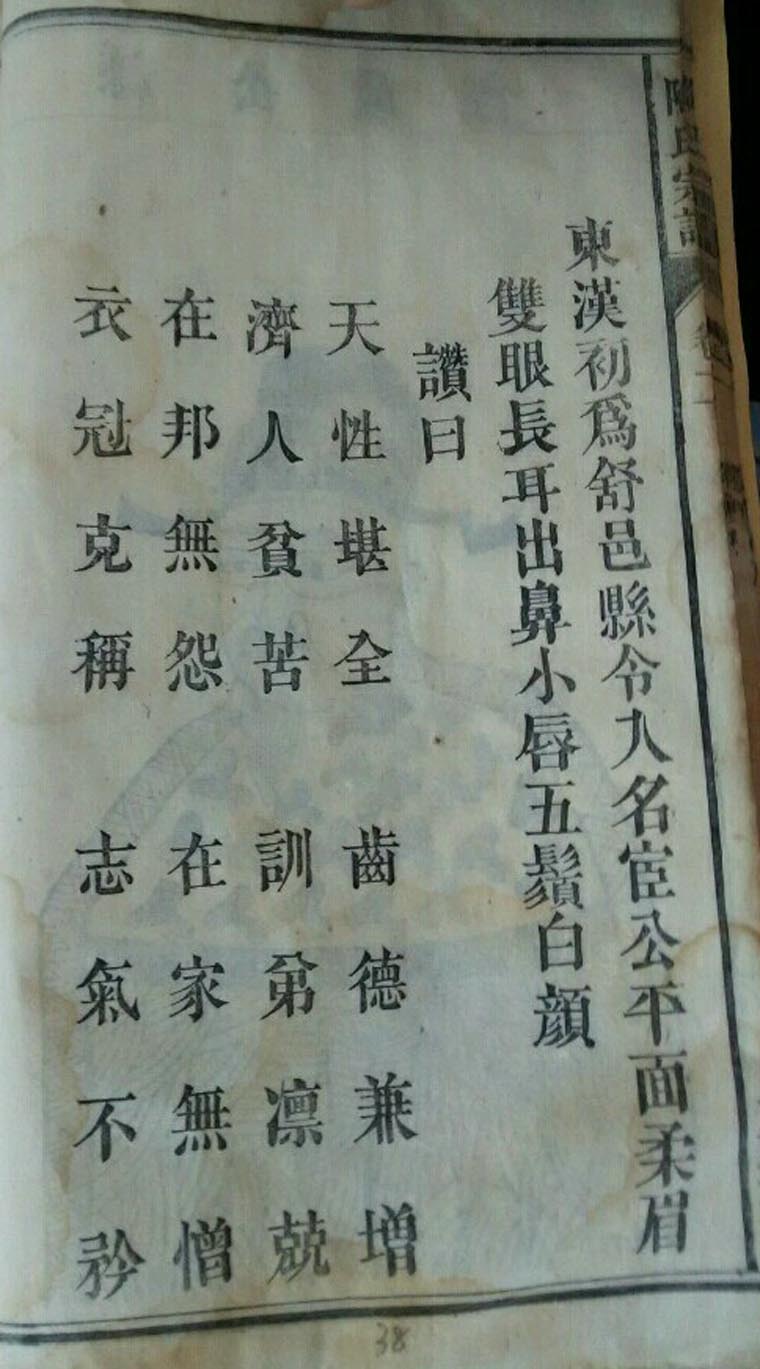 陳氏宗譜 卷二
東漢初爲舒邑縣令入名宦公平面柔眉
雙眼長耳出鼻小唇五鬚白顔
讚曰
天性堪全 齒德兼增
濟人貧苦 訓弟凛兢
在邦無怨 在家無憎
衣冠克稱 志氣不矜
38